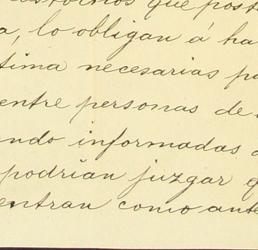 que
a, lo obligan á ha
tima necesarias pa
entre personas de
ndo informadas
podrían juzgar q
entran como ante